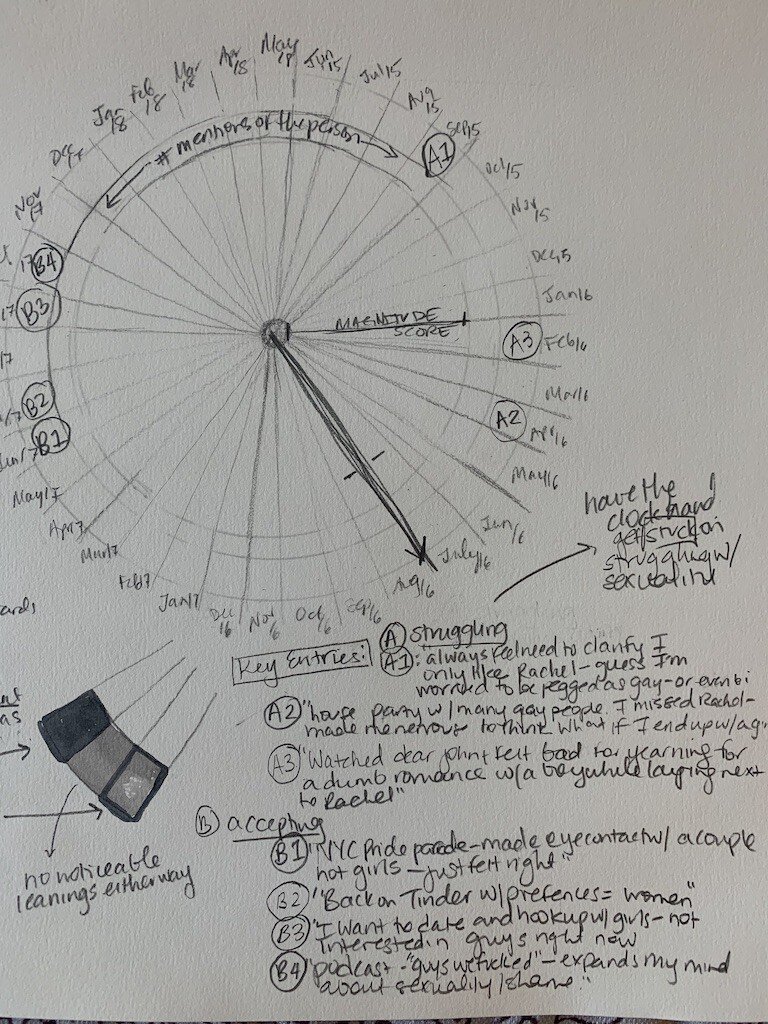 May
18
Jun
15
Jul 15
Aug
15
Sep 15
A1
Oct 15
Nov 15
Dec 15
Jan 16
A3
Feb 16
Mar 16
A2
Apr 16
May 16
Jun 16
July 16
Aug 16
Sep 16
Oct
16
Nov
16
Dec
16
Jan 17
Feb 17
Mar 17
Apr 17
May 17
Jun 17
B1
B2
17
B3
17
B4
Nov
17
Dec
Jan
18
Feb
18
Mar
18
Apr
18
# mentions of the person
MAGNITUDE
SCORE
have the
clock hand
get stuck on
struggling w/
sexuality
Key Entries:
A struggling
A1: "always feel need to clarify I
only like Rachel - guess I'm
worried to be pegged as gay - or even bi
A2 "house party w/ many gay people. I missed Rachel -
made me nervous to think what if I end up w/ a
A3 "Watched dear john + felt bad for yearning for
a dumb romance w/ a boy while laying next
to Rachel"
B accepting
B1 "NYC Pride parade - made eye contact w/ a couple
hot girls - just felt right"
B2 "Back on Tinder w/ prefences = women"
B3 "I want to date and hookup w/ girls - not
interested in guys right now
B4 "podcast - "guys we fucked" - expands my mind
about sexuality/shame."
as
no noticeable
leanings either way